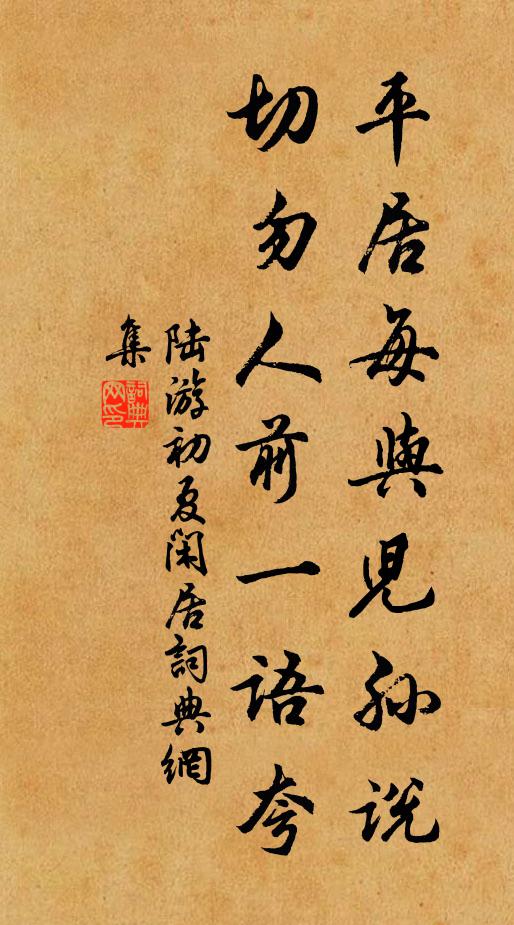 平居每與兒孫説
切勿人前一語夸
陆游初夏閑居詞典網
集
詞典
网印